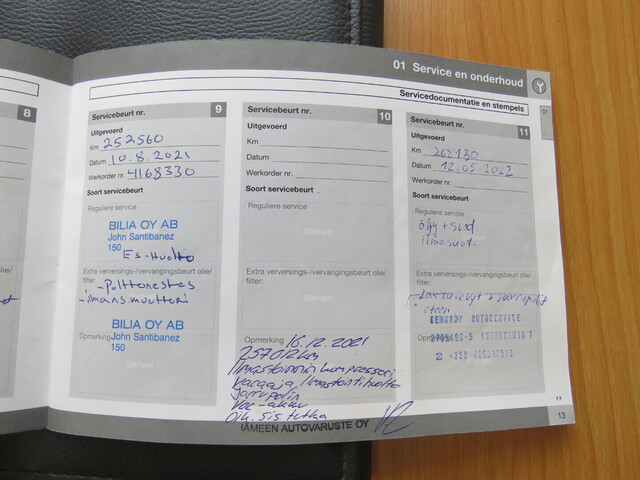 01 Service en onderhoud
Servicedocumentatie en stempels
01
8
Servicebeurt nr. 9
Uitgevoerd
Km 252560
Datum 10.8.2021
Werkorder nr. 4168330
Soort servicebeurt
Reguliere service
BILIA OY AB
John Santibanez
150
Es-Huolto
Extra verversings-/vervangingsbeurt olie/
filter:
- Polttonestes.
BILIA OY AB
John Santibanez
Opmerking 150
Servicebeurt nr. 10
Uitgevoerd
Km
Datum
Werkorder nr.
Soort servicebeurt
Reguliere service
Stempel
Extra verversings-/vervangingsbeurt olie/
filter:
Stempel
Opmerking 16.12.2021
257012 km
Ilmastoinnin kompressori
varaaja, Ilmastointihuolto
Jarrupolin
Vac-akku
Oik. sis tutka
HÄMEEN AUTOVARUSTE OY
Servicebeurt nr. 11
Uitgevoerd
Km
Datum 12.05.2022
Werkorder nr.
Soort servicebeurt
Reguliere service
öljy + suod
ilmasuod.
Extra verversings-/vervangingsbeurt olie/
filter:
KENNADY AUTOSERVICE
Opmerking
13